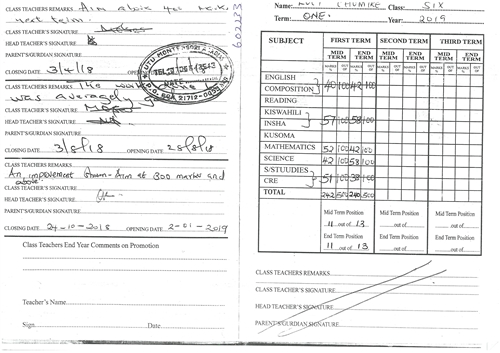 CLASS TEACHERS REMARKS Aim above 400 t.c.k.
next term.
CLASS TEACHER'S SIGNATURE
HEAD TEACHER'S SIGNATURE
PARENT'S/GURDIAN SIGNATURE
CLOSING DATE 3/4/18 OPENING DATE
CLASS TEACHERS REMARKS The work
was averagely
CLASS TEACHER'S SIGNATURE
HEAD TEACHER'S SIGNATURE
PARENT'S/GURDIAN SIGNATURE
CLOSING DATE 3/8/18 OPENING DATE 28/8/18
CLASS TEACHERS REMARKS
An improvement shown - Aim at 300 marks and
above.
CLASS TEACHER'S SIGNATURE
HEAD TEACHER'S SIGNATURE
PARENT'S/GURDIAN SIGNATURE
CLOSING DATE 24-10-2018 OPENING DATE 2-01-2019
Class Teachers End Year Comments on Promotion
Teacher's Name
Sign Date
Name: Class: SIX
Term: ONE. Year: 2019
SUBJECT FIRST TERM SECOND TERM THIRD TERM
MID TERM END TERM MID TERM END TERM MID TERM END TERM
MARKS OUT OF MARKS OUT OF MARKS OUT OF MARKS OUT OF MARKS OUT OF MARKS OUT OF
ENGLISH
COMPOSITION 40 100 42 100
READING
KISWAHILI
INSHA 57 100 58 100
KUSOMA
MATHEMATICS 52 100 42 100
SCIENCE 42 100 58 100
S/STUUDIES
CRE 51 100 38 100
TOTAL 242 500 240 500
Mid Term Position Mid Term Position Mid Term Position
11 out of 13 out of out of
End Term Position End Term Position End Term Position
11 out of 13 out of out of
CLASS TEACHERS REMARKS
CLASS TEACHER'S SIGNATURE
HEAD TEACHER'S SIGNATURE
PARENT'S/GURDIAN SIGNATURE